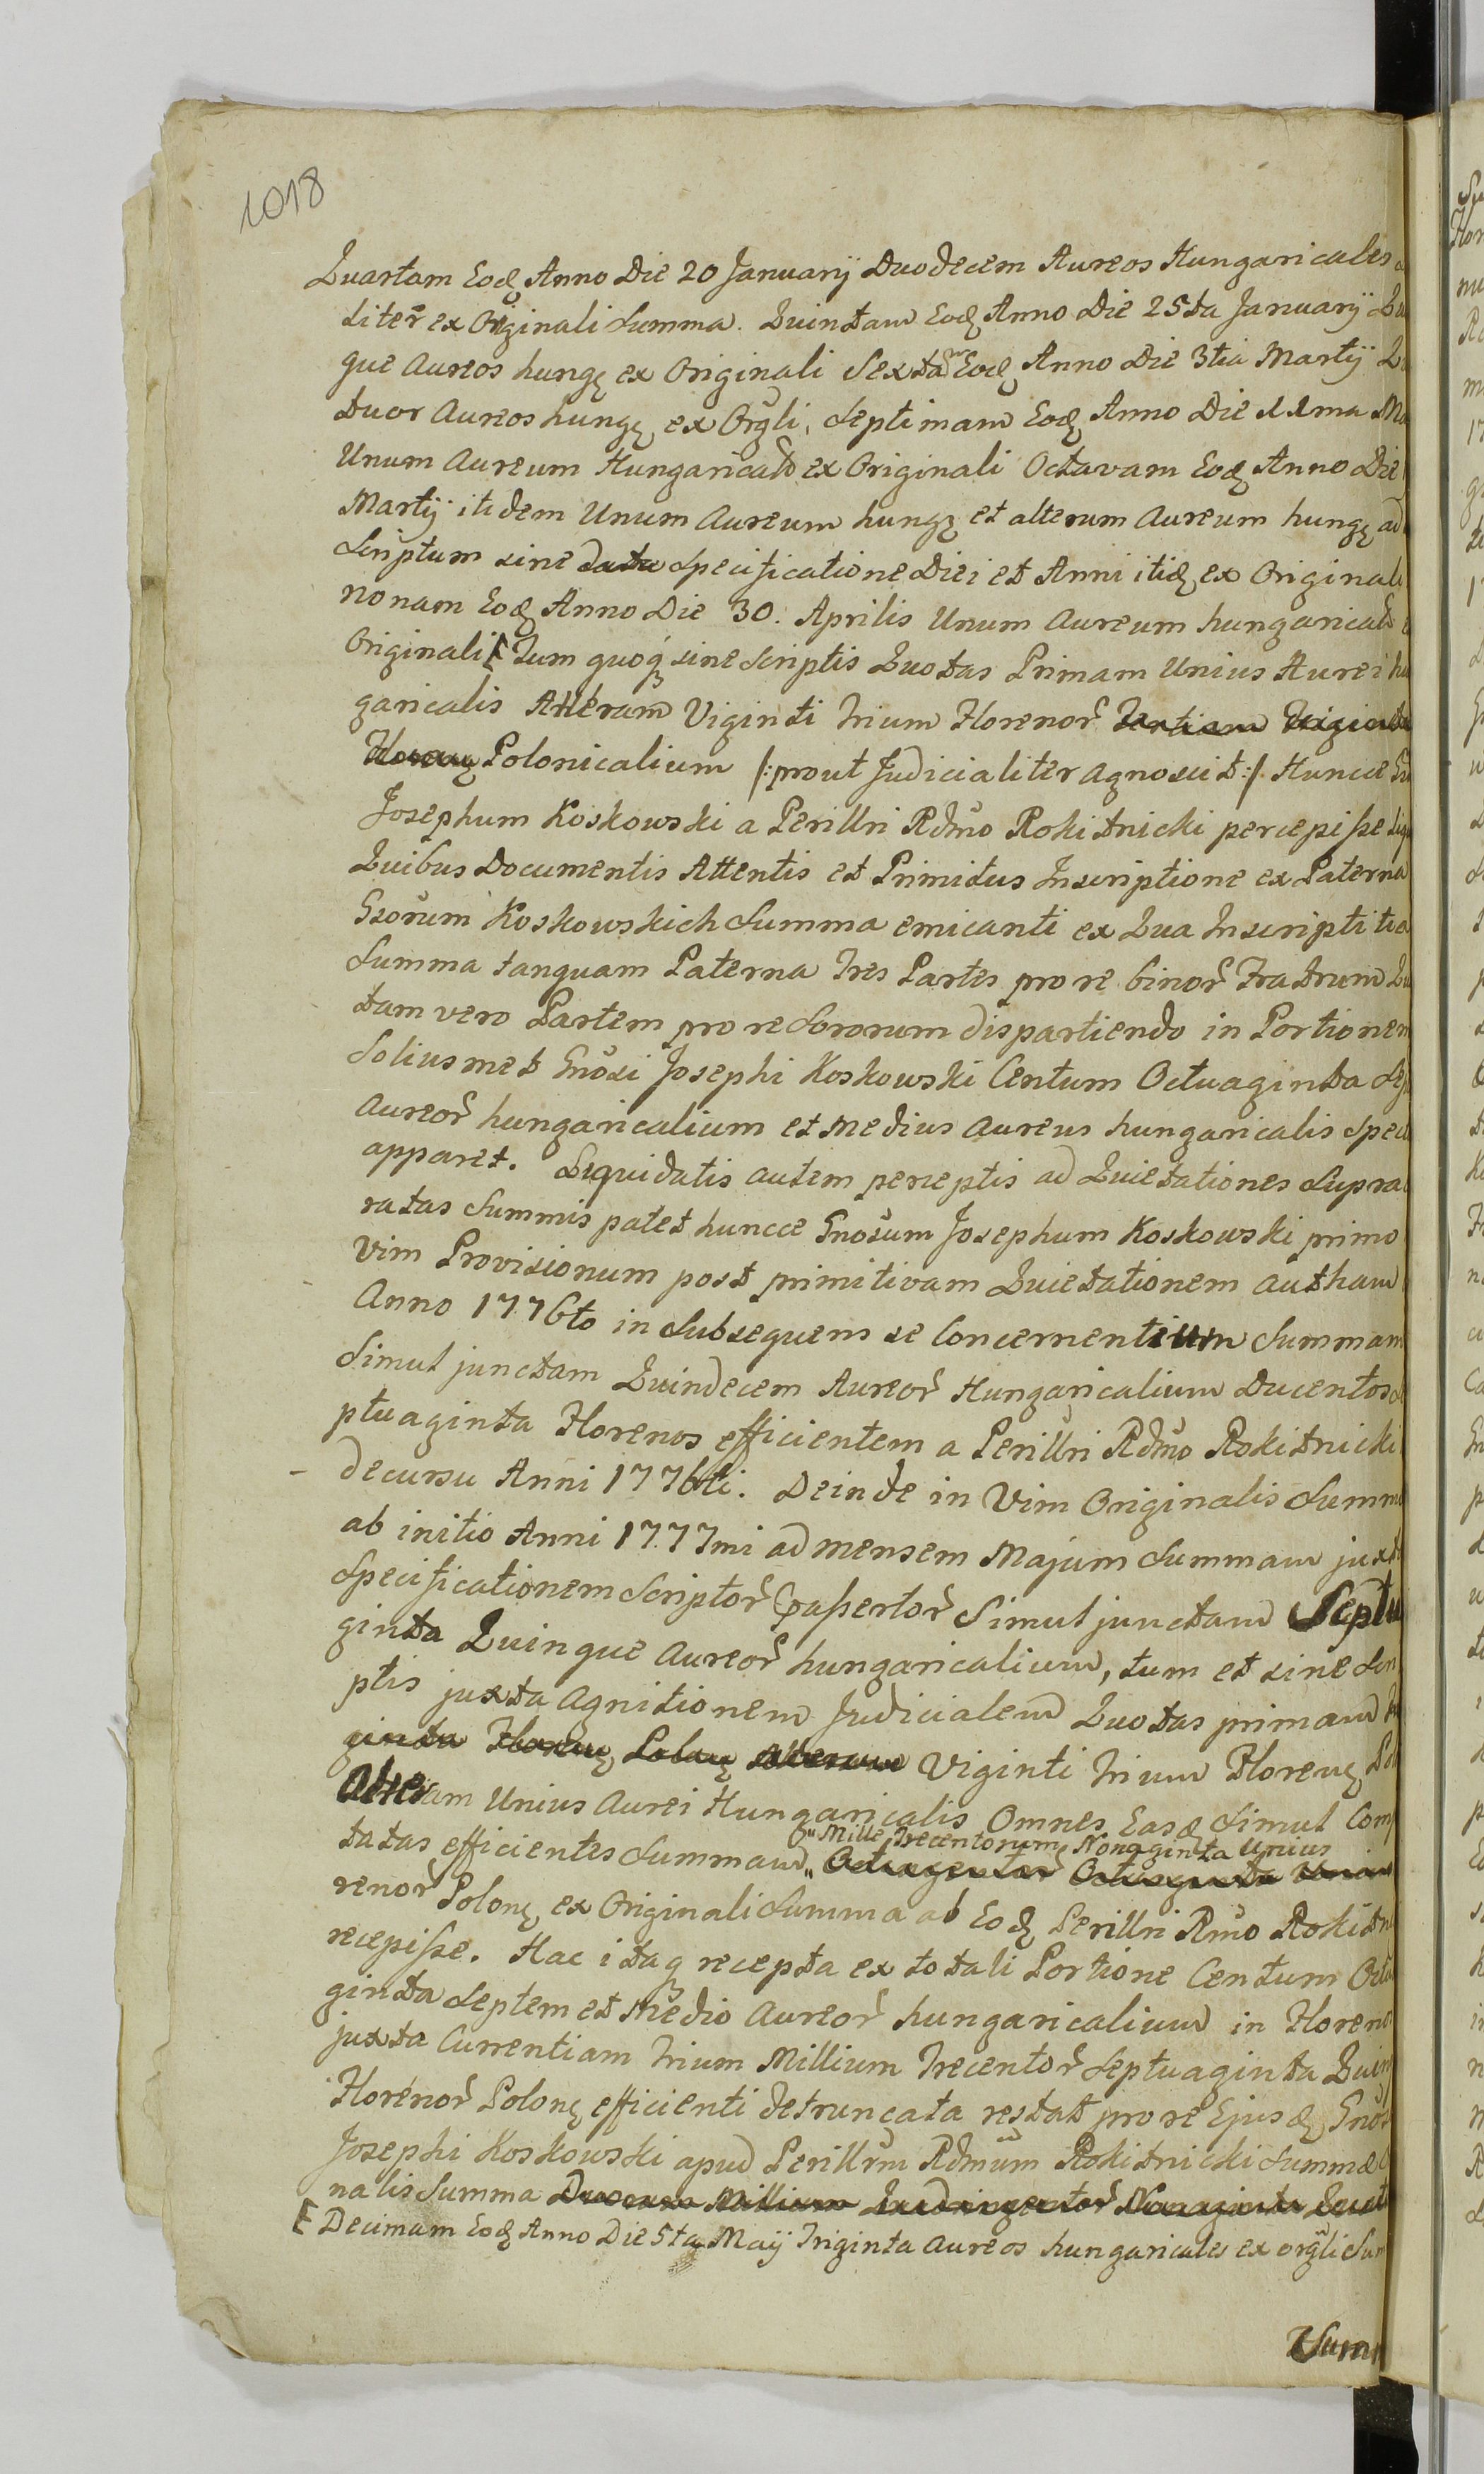 1018
Quartam Eodę Anno Die 20 Januarij Duodecem Aureos Hungaricales
liter ex Originali Summa. Quintam Eodę Anno Die 25ta Januarij
que Aureos hungę ex Originali Sextam Eodę Anno Die 3tia Martij
tuor Aureos hungę ex Orgli, Septimam Eodę Anno Die 11ma
Unum Aureum Hungaricalẽ ex Originali Octavam Eodę Anno Die
Martij itidem Unum Aureum hungę et alterum Aureum hungę ad
Scriptum sine data Specificatione Diei et Anni itidę ex Originali
nonam Eodę Anno Die 30. Aprilis Unum Aureum hungaricalẽ
Originali [ Tum quoqꝫ sine Scriptis Quotas Primam Unius Aurei hu
garicalis Alteram Viginti Trium Florenor̃ Tertiam Triginta
Florenę Polonicalium /: prout Judicialiter agnoscit :/ Huncce
Josephum Koskowski a Perillri Rdm̃o Rokitnicki percepisse
Quibus Documentis Attentis et Primitus Inscriptione ex Paterna
Gsorum Koskowskich Summa emicanti ex Qua Inscriptitia
Summa tanquam Paterna Tres Partes pro re binor̃ Fratrum
tam vero Partem pro re Sororum dispartiendo in Portionem
Soliusmet Gnosi Josephi Koskowski Centum Octuaginta
Aureor̃ hungaricalium et Medius Aureus hungaricalis
apparet. Liquidatis autem perceptis ad Quietationes Supra
ratas Summis patet huncce Gnosum Josephum Koskowski primo
Vim Provisionum post primitivam Quietationem autham
Anno 1776to in Subsequens se Concernentium Summam
Simul junctam Quindecem Aureor̃ Hungaricalium Ducentos
ptuaginta Florenos efficientem a Perillri Rdm̃o Rokitnicki
decursu Anni 1776ti. Deinde in Vim Originalis Summ
ab initio Anni 1777mi ad mensem Majum Summam
Specificationem Scriptor̃ Cpassertor̃ Simul junctam Septu
ginta Quinque Aureor̃ hungaricalium, tum et sine
ptis juxta Agnitionem Judicialem Quotas primam
ginta Florenę Polonę Alteram Viginti Trium Florenę
Alteram Unius Aurei Hungaricalis Omnes Easdę Simul Com
"Mille Trecentorum Nonaginta Unius
tatas efficientes Summam " Octingentor̃ Octuaginta Unius
renor̃ Polonę ex Originali Summa ab Eodę Perillri Rm̃o
recepisse. Hac itaqꝫ recepta ex totali Portione Centum
ginta Septem et Medio Aureor̃ hungaricalium in
juxta Currentiam Trium Millium Trecentor̃ Septuaginta
Florenor̃ Polonę efficienti detruncata restat pro re Ejusdę
Josephi Koskowski apud Perillrm Rdmũm Rokitnicki
nalis Summa Duorum Millium Quadringentor̃ Nonaginta
[ Decimam Eodę Anno Die 5ta Maij Triginta Aureos hungaricales ex orgli